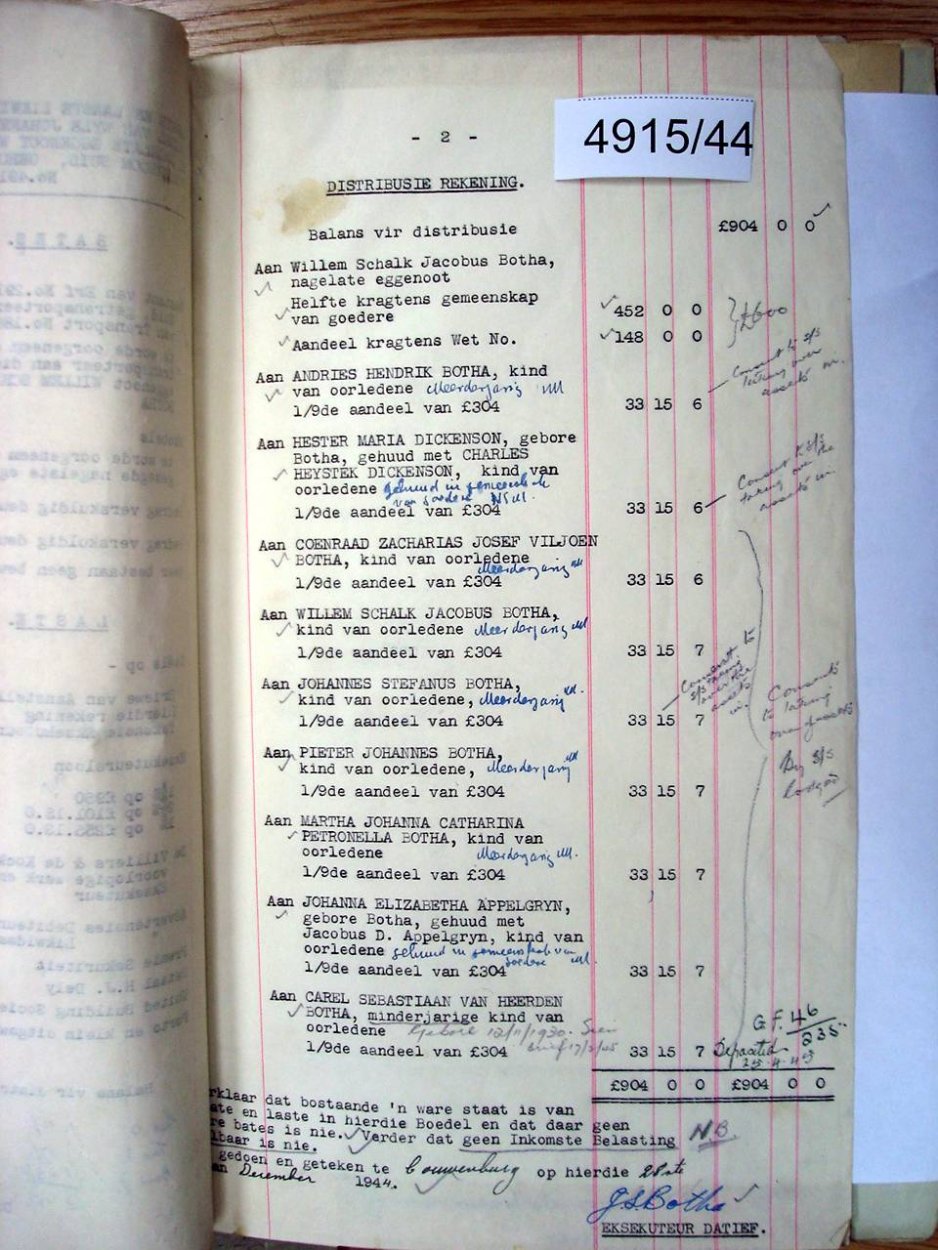 4915/44
- 2 -
DISTRIBUSIE REKENING.
Balans vir distribusie £904 0 0
Aan Willem Schalk Jacobus Botha,
nagelate eggenoot
Helfte kragtens gemeenskap
van goedere 452 0 0 £600
Aandeel kragtens Wet No. 148 0 0
Aan ANDRIES HENDRIK BOTHA, kind
van oorledene Meerderjarig
1/9de aandeel van £304 33 15 6
Consent to s/s taking over assets
Aan HESTER MARIA DICKENSON, gebore
Botha, gehuud met CHARLES
HEYSTEK DICKENSON, kind van
oorledene gehuud in gemeenskab
van goedere
1/9de aandeel van £304 33 15 6
Consent to s/s taking over the assets
Aan COENRAAD ZACHARIAS JOSEF VILJOEN
BOTHA, kind van oorledene
Meerderjarig
1/9de aandeel van £304 33 15 6
Aan WILLEM SCHALK JACOBUS BOTHA,
kind van oorledene Meerderjarig
1/9de aandeel van £304 33 15 7
Aan JOHANNES STEFANUS BOTHA,
kind van oorledene, Meerderjarig
1/9de aandeel van £304 33 15 7
Consent to s/s taking over the assets
Consents to taking over of assets
By s/s lodged
Aan PIETER JOHANNES BOTHA,
kind van oorledene, Meerderjarig
1/9de aandeel van £304 33 15 7
Aan MARTHA JOHANNA CATHARINA
PETRONELLA BOTHA, kind van
oorledene Meerderjarig
1/9de aandeel van £304 33 15 7
Aan JOHANNA ELIZABETHA APPELGRYN,
gebore Botha, gehuud met
Jacobus D. Appelgryn, kind van
oorledene gehuud in gemeenskab van
goedere
1/9de aandeel van £304 33 15 7
Aan CAREL SEBASTIAAN VAN HEERDEN
BOTHA, minderjarige kind van
oorledene Gebore 12/11/1930. Sien
brief 17/2/45
1/9de aandeel van £304 33 15 7
G.F. 46/235
Deposited
25.4.45
£904 0 0 £904 0 0
rklaar dat bostaande 'n ware staat is van
ate en laste in hierdie Boedel en dat daar geen
re bates is nie. Verder dat geen Inkomste Belasting NB
lbaar is nie.
gedoen en geteken te Couwenburg op hierdie 28ste
an Desember 1944.
J S Botha
EKSEKUTEUR DATIEF.